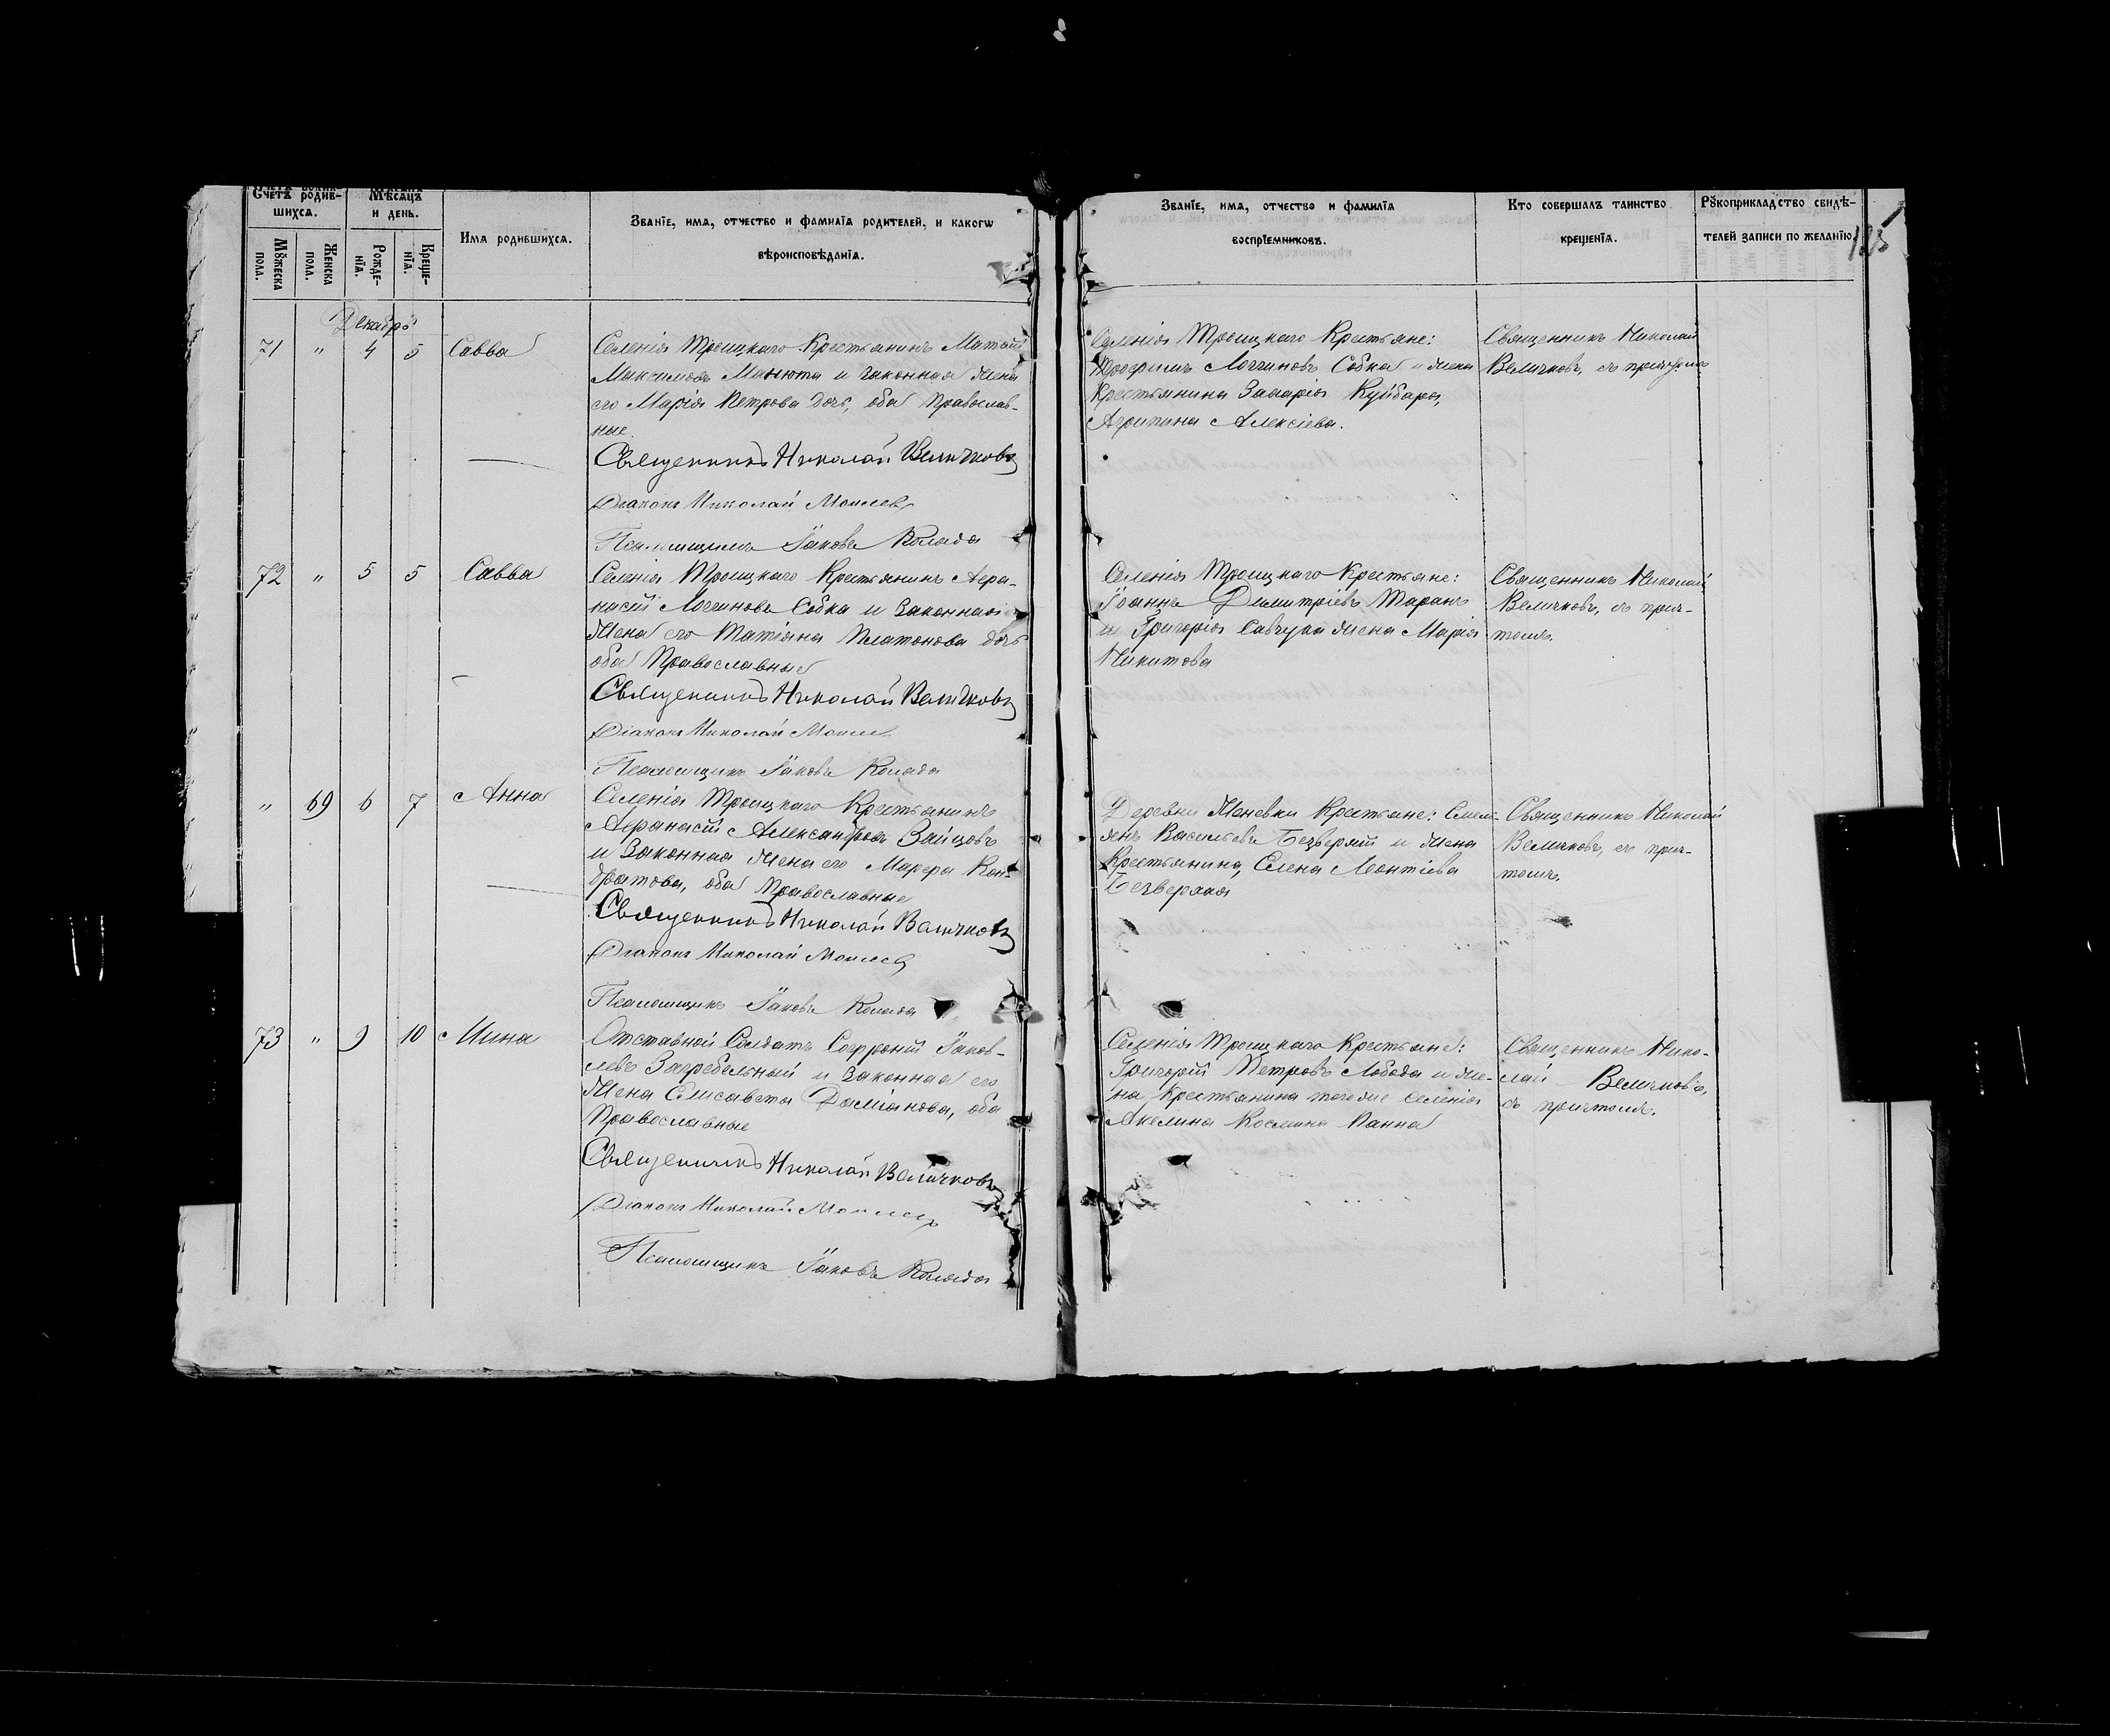 Счетъ родив-
шихсѧ.
Мѣсѧцъ
и день.
Мꙋжеска
пола.
Женска
пола.
Рожде-
нїѧ.
Креще-
нїѧ.
Имѧ родившихсѧ.
Званїе, имѧ, отчество и фамилїѧ родителей, и какогѡ
вѣроисповѣданїѧ.
Званїе, имѧ, отчество и фамилїѧ
воспрїемниковъ.
Кто совершалъ таинство
крещенїѧ.
Рꙋкоприкладство свидѣ-
телей записи по желанїю.
Декабрь
71 " 4 5 Савва
Селенія Троицкаго Крестьянинъ Матѳій
Максимовъ Манюта и законная жена
его Марія Петрова дочь, оба православ-
ные.
Священникъ Николай Величковъ
Діаконъ Николай
Псаломщикъ Іаковъ Коляда
Селенія Троицкаго Крестьяне:
Трофимъ Логгиновъ Собка и жена
Крестьянина Захарія
Агрипина Алексіева.
Священникъ Николай
Величковъ, съ причтомъ
72 " 5 5 Савва
Селенія Троицкаго Крестьянинъ Афа-
насій Логгиновъ Собка и законная
жена его Татіяна Платонова дочь
оба Православные
Священникъ Николай Величковъ
Діаконъ Николай
Псаломщикъ Іаковъ Коляда
Селенія Троицкаго Крестьяне:
Іоаннъ Димитріевъ Таранъ
и Григорія жена Марія
Никитова
Священникъ Николай
Величковъ, съ прич-
томъ.
" 69 6 7 Анна
Селенія Троицкаго Крестьянинъ
Афанасій Александровъ Зайцовъ
и законная жена его Марфа Кон-
дратова, оба Православные
Священникъ Николай Величковъ
Діаконъ Николай
Псаломщикъ Іаковъ Коляда
Деревни Крестьяне:
Васильевъ Безверхій и жена
Крестьянина, Елена Леонтіева
Безверхая
Священникъ Николай
Величковъ, съ прич-
томъ.
73 " 9 10 Мина
Отставной Солдатъ Софроній Іаков-
левъ Загребельный и законная его
жена Елисавета Даміанова, оба
Православные
Священникъ Николай Величковъ
Діаконъ Николай
Псаломщикъ Іаковъ Коляда
Селенія Троицкаго Крестьяне:
Григорій Петровъ Лобода и же-
на Крестьянина тогоже селенія
Акелина Космина Панна
Священникъ Нико-
лай Величковъ,
съ причтомъ.